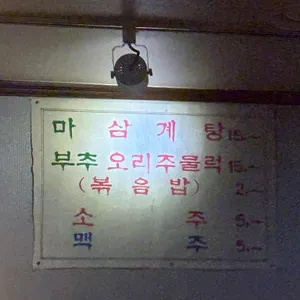 마 삼 계 탕 15.-
부추 오리주물럭 15.-
(볶음밥) 2.-
소 주 5.-
맥 주 5.-